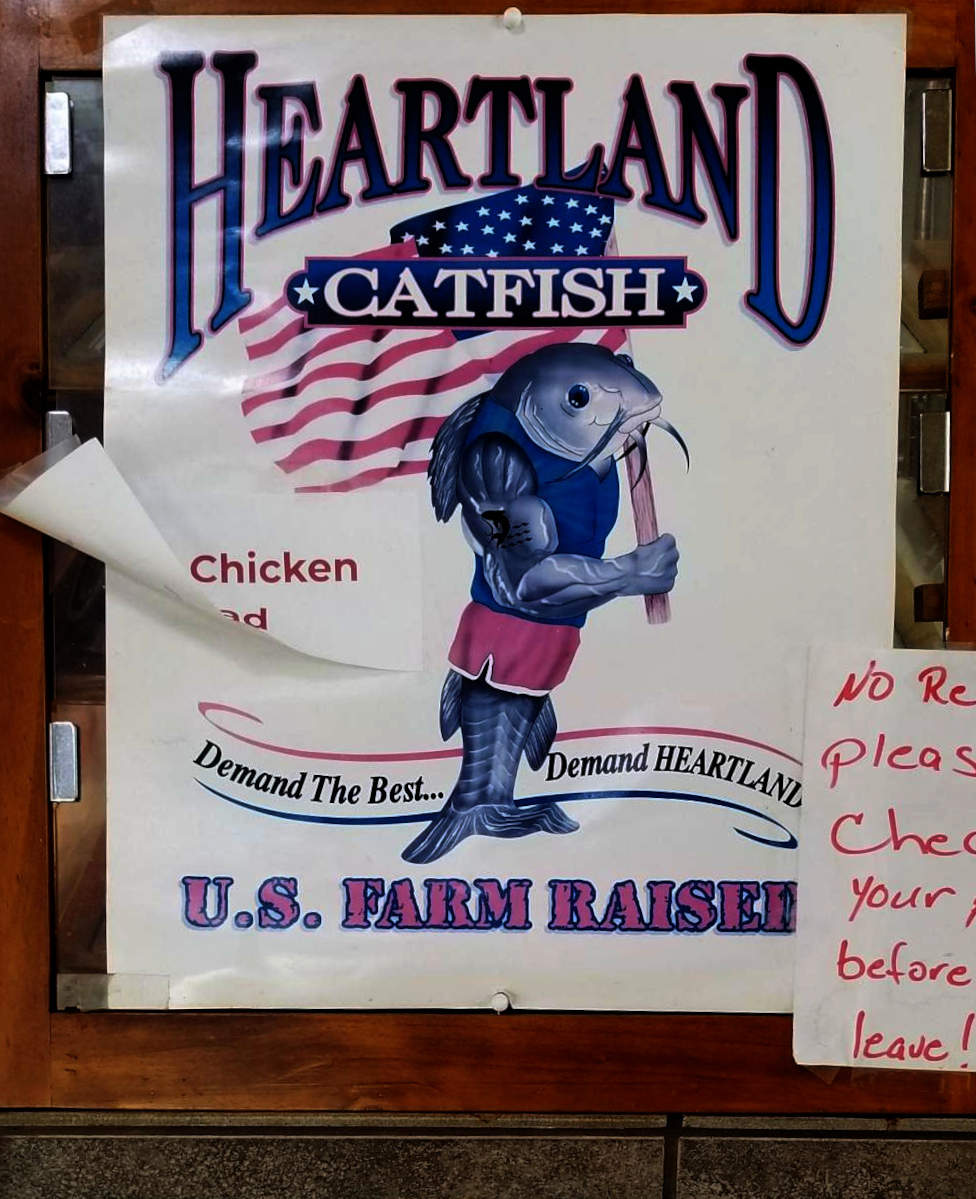 HEARTLAND
CATFISH
Chicken
Demand The Best... Demand HEARTLAND
U.S. FARM RAISED
NO Re
Pleas
Chec
Your
before
leave!